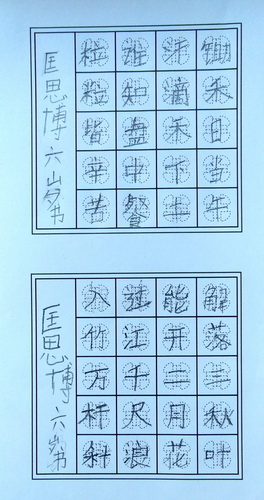 锄禾日当午
汗滴禾下土
谁知盘中餐
粒粒皆辛苦
匡思博六岁书
解落三秋叶
能开二月花
过江千尺浪
入竹万竿斜
匡思博六岁书